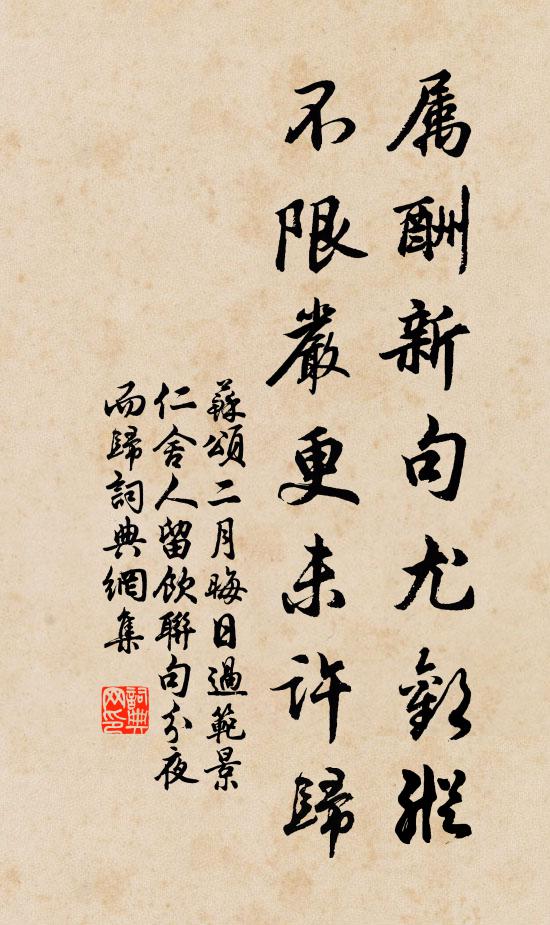 属酬新句尤歡縱
不限嚴更未許歸
蘇頌二月晦日過範景
仁舍人留飲聯句分夜
而歸詞典網集
詞典網印